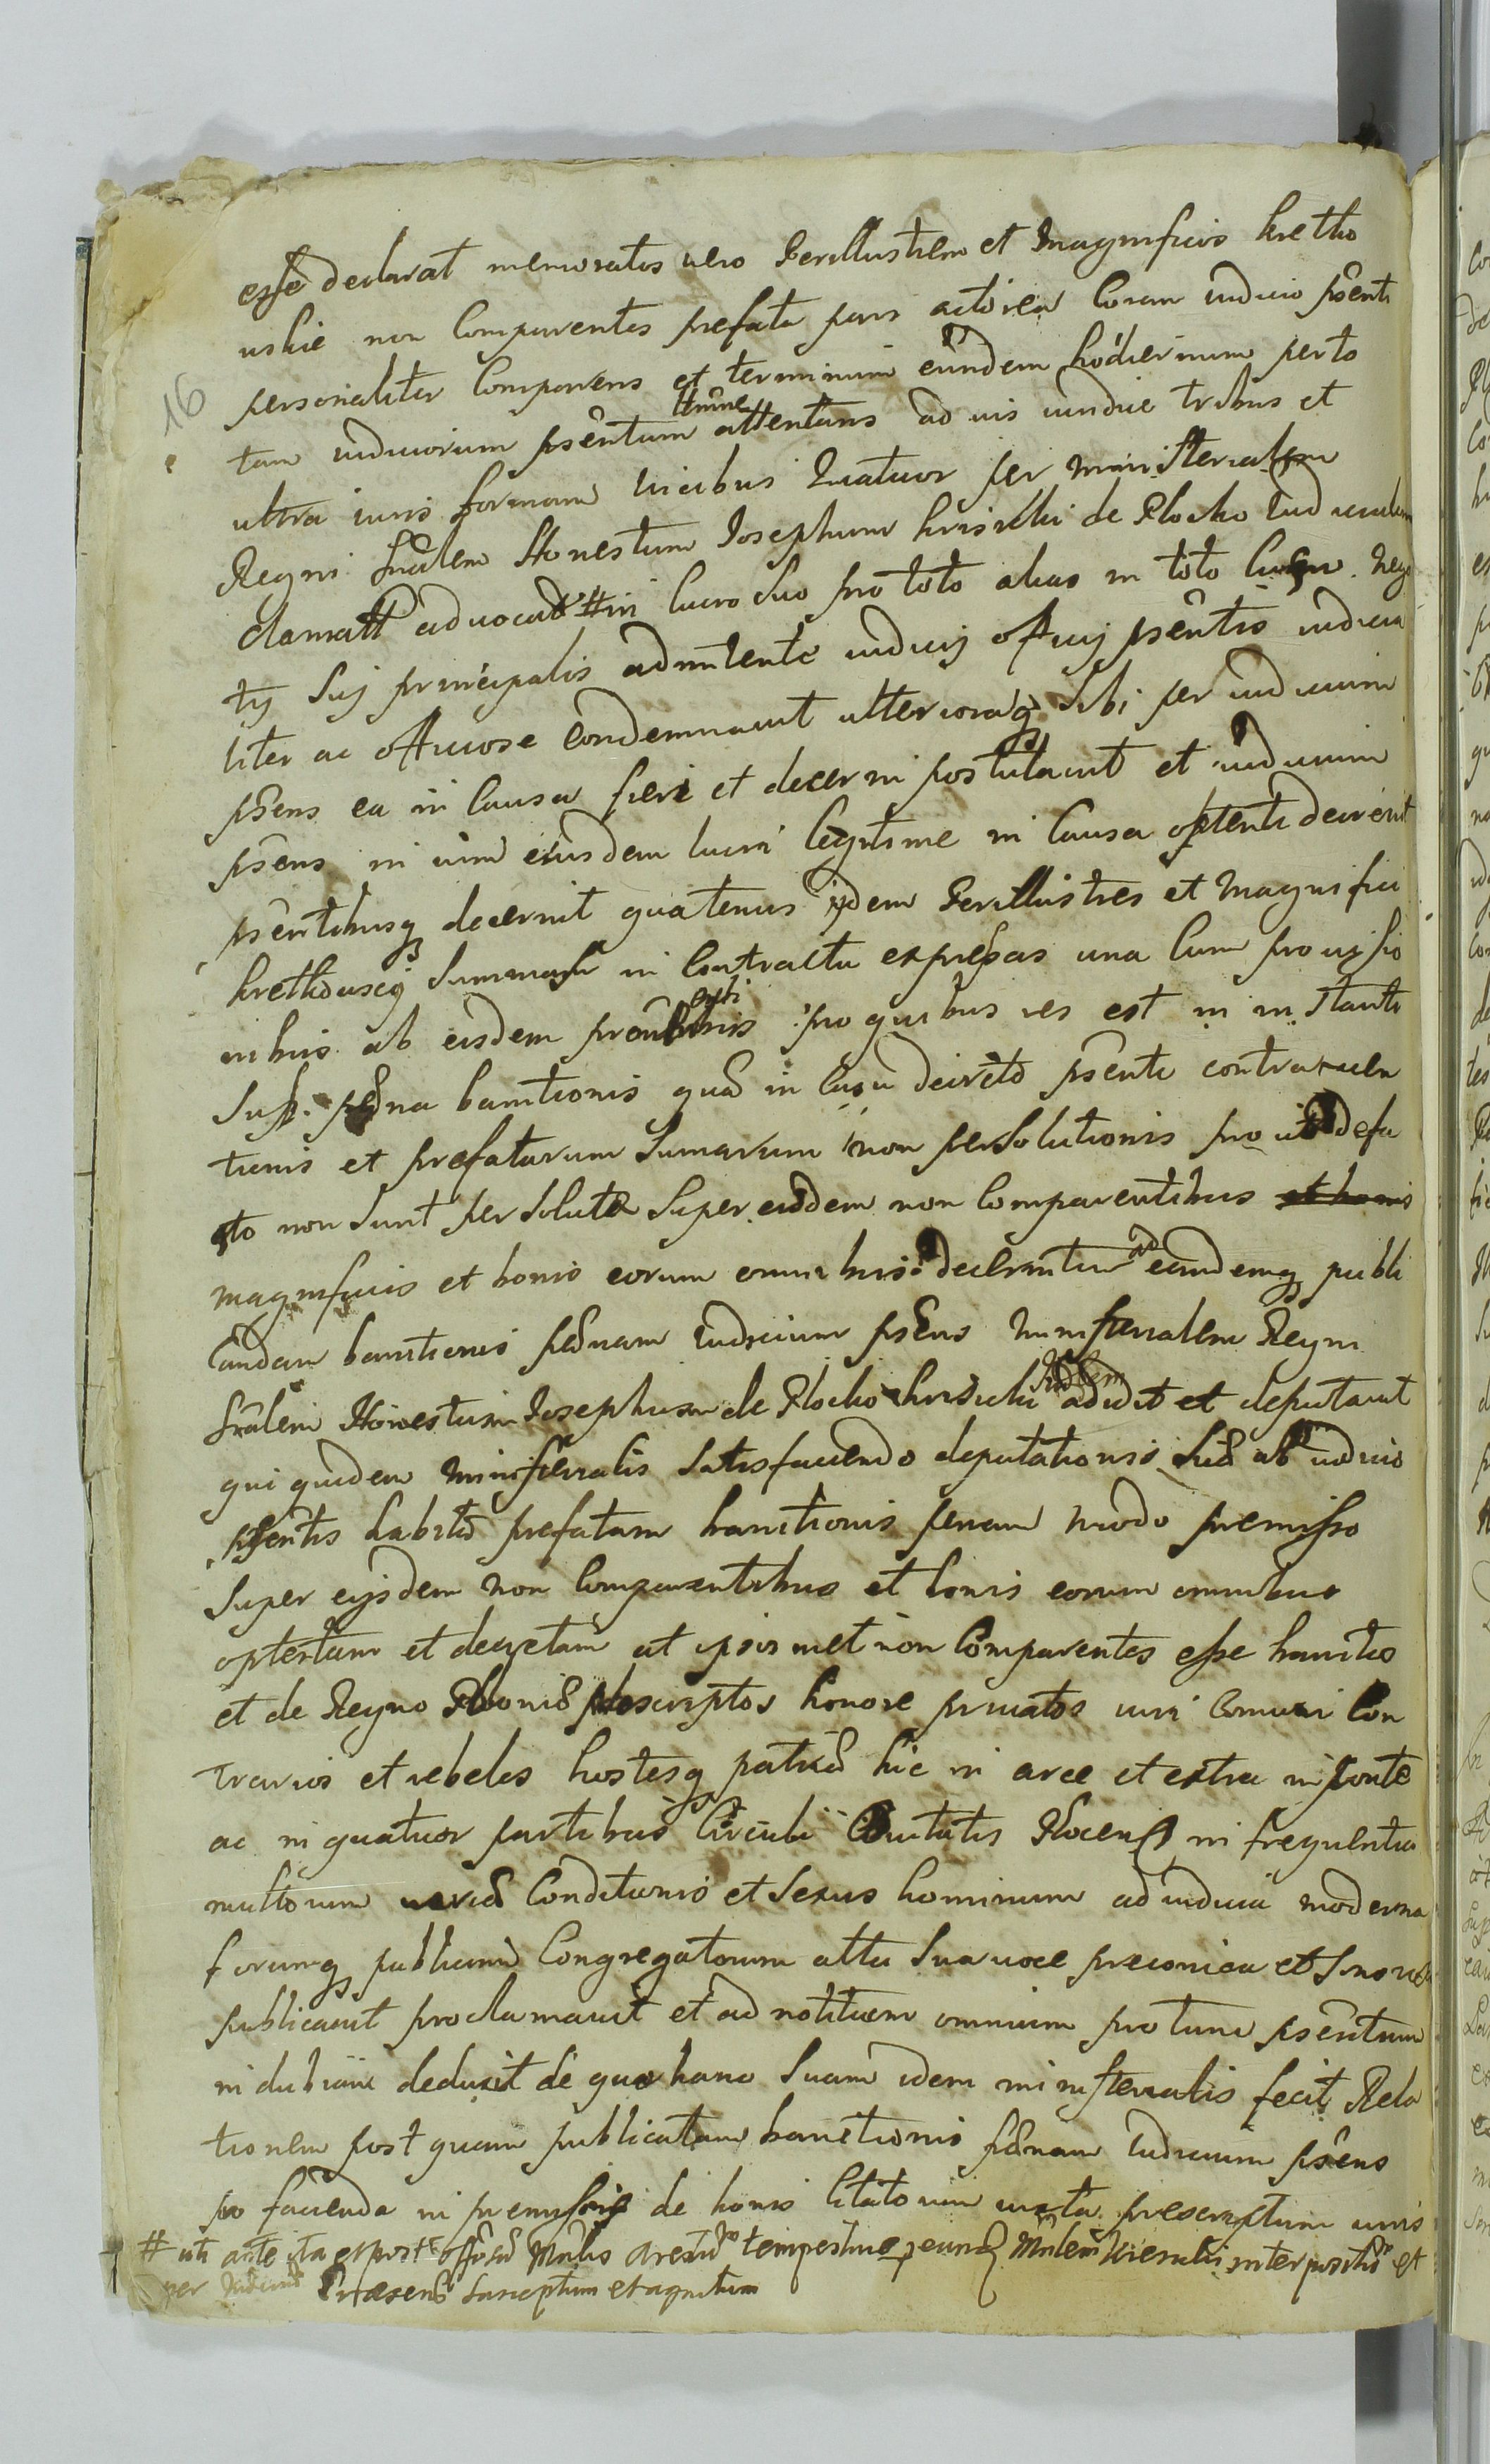 esse declarat memoratos vero Perillustrem et Magnificos Kretko
uskie non Comparentes prefata pars actorea Coram iudicio psenti
personaliter Comparens et terminum eundem hodiernum per to
16
tam iudiciorum psentium attentans ad uis iuridice tribus et
ultra iuris formam vicibus Quatuor per ministerialem
Regni Gnalem Honestum Josephum de Plocko Iudicialem
clamatt advocatt # in lucro suo pro toto alias in toto lucro Nego
tij Sui principalis admitente iudicij officij psentis iudicia
liter ac officiose Condemnavit ulterioraq sibi per iudicium
psens ea in Causa fieri et decerni postulavit et iudicium
psens in vim eiusdem lucri legitime in Causa optenti decrevit
psentibusq decernit quatenus ijdem Perillustres et Magnifici
Kretkouscij Summas in Contractu expressas una Cum provisio
nibus ab eisdem pro quibus res est in instanti
Sub pæna banitionis quæ in Casu decreto psenti contraven
tionis et prefatarum Sumarum non persolutionis pro ut de fa
cto non sunt persolutæ Super eisdem non Comparentibus et bonis
magnificis et bonis eorum omnibus decernitur ad eandemq publi
candam banitionis pænam Iudicium psens Ministerialem Regni
Gnalem Honestum Josephum de Plocko addidit et deputavit
qui quidem Ministerialis satisfaciendo deputationis suæ ab iudicio
psentis habitæ prefatam banitionis penam modo premisso
Super eijsdem non Comparentibus et bonis eorum omnibus
optentam et decretam ut ipsos met non Comparentes esse banitos
et de Regno Poloniæ proscriptos honore privatos iuri Comuni Con
trarios et rebeles hostesq patriæ hic in arce et extra in ponte
ac in quatuor partibus Circuli Civitatis Plocens in frequentia
multorum variæ Conditionis et Sexus hominum ad iudicia moderna
forumq publicum Congregatorum alta sua voce preconica et sonora
publicavit proclamavit et ad notitiam omnium pro tunc psentium
in dubiam deduxit de quo hanc Suam idem ministerialis fecit Rela
tionem post quam publicatam banitionis pænam Iudicium psens
pro facienda in premissis de bonis Citatorum iuxta prescriptum iuris
# uti ante ita et post tempestive per eund Mnlem interpositæ et
per Iudicium Præsens susceptum et agnitum